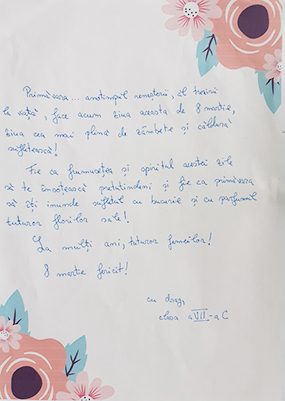 Primăvara... anotimpul renașterii, al trezirii
la viață, face acum ziua aceasta de 8 martie,
ziua cea mai plină de zâmbete și căldură
sufletească!
Fie ca frumusețea și spiritul acestei zile
să te însoțească pretutindeni și fie ca primăvara
să îți inunde sufletul cu bucurie și cu parfumul
tuturor florilor sale!
La mulți ani, tuturor femeilor!
8 martie fericit!
cu drag,
clasa a VII-a C